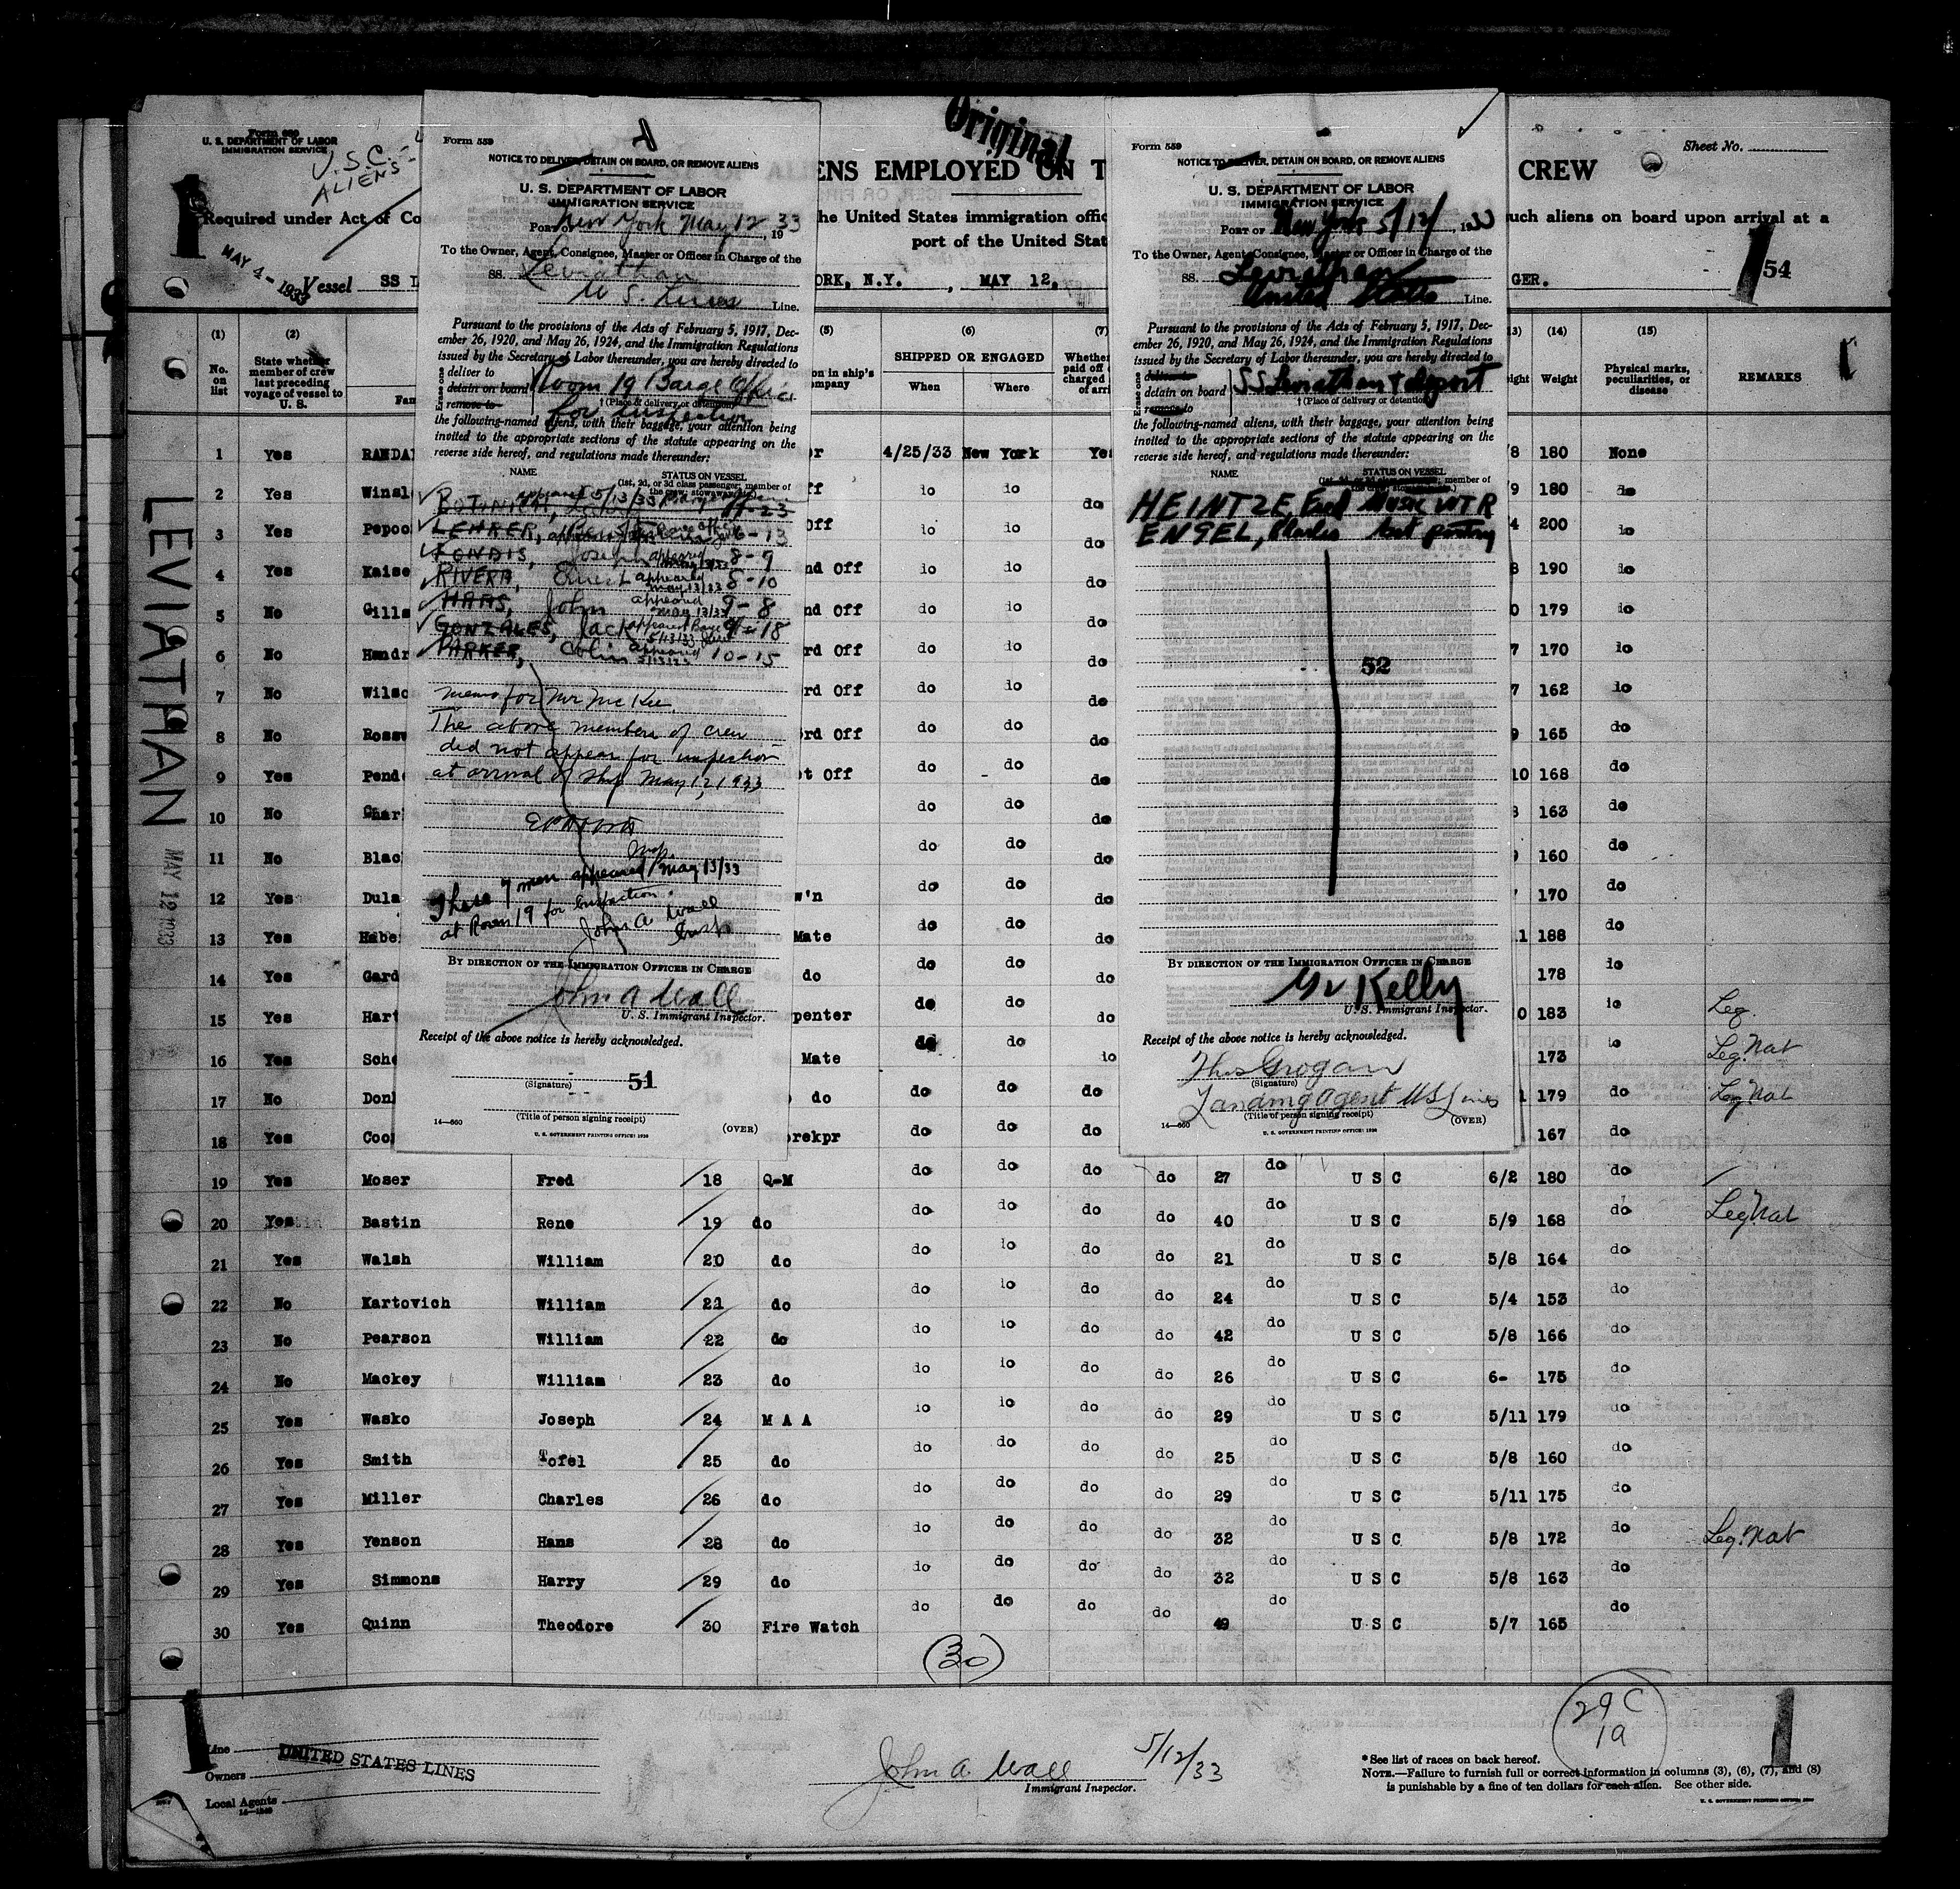 Original
Form 689
U. S. DEPARTMENT OF LABOR
IMMIGRATION SERVICE
U.S.C.-
ALIENS-
ENS EMPLOYED ON T
CREW
Sheet No.
Required under Act of Co
he United States immigration offic
uch aliens on board upon arrival at a
port of the United Stat
MAY 4 - 1933
Vessel SS L
ORK, N.Y. , MAY 12,
GER.
54
LEVIATHAN
MAY 12 1933
Form 559
NOTICE TO DELIVER, DETAIN ON BOARD, OR REMOVE ALIENS
U. S. DEPARTMENT OF LABOR
IMMIGRATION SERVICE
PORT OF New York May 12, 1933
To the Owner, Agent, Consignee, Master or Officer in Charge of the
SS. Leviathan
U S. Lines Line.
Pursuant to the provisions of the Acts of February 5, 1917, Dec-
ember 26, 1920, and May 26, 1924, and the Immigration Regulations
issued by the Secretary of Labor thereunder, you are hereby directed to
Erase one
deliver to
detain on board
remove to
Room 19 Barge Office
† (Place of delivery or detention)
for Inspection
the following-named aliens, with their baggage, your attention being
invited to the appropriate sections of the statute appearing on the
reverse side hereof, and regulations made thereunder:
NAME STATUS ON VESSEL
(1st, 2d, or 3d class passenger; member of
the crew; stowaway, etc.)
appeared 5/13/33
11-23
LEHRER, 6-13
FONDIS, Joseph appeared 8-9
RIVERA, Ernest appeared May 13/33 8-10
HAAS, John appeared May 13/33 9-8
GONZALES, Jack appeared Barge 5/13/33 9-18
PARKER, Colin appeared 5/13/33 10-15
memo for Mr Mc Kee.
The above members of crew
did not appear for inspection
at arrival of ship May 12, 1933
Insp.
These 7 men appeared May 13/33
at Room 19 for Inspection.
John A Wall
Insp
BY DIRECTION OF THE IMMIGRATION OFFICER IN CHARGE
John A Wall
U. S. Immigrant Inspector.
Receipt of the above notice is hereby acknowledged.
51
(Signature)
(Title of person signing receipt)
14—660 (OVER)
U. S. GOVERNMENT PRINTING OFFICE: 1930
Form 559
NOTICE TO DELIVER, DETAIN ON BOARD, OR REMOVE ALIENS
U. S. DEPARTMENT OF LABOR
IMMIGRATION SERVICE
PORT OF New York 5/12/, 1933
To the Owner, Agent, Consignee, Master or Officer in Charge of the
SS. Leviathan
United States Line.
Pursuant to the provisions of the Acts of February 5, 1917, Dec-
ember 26, 1920, and May 26, 1924, and the Immigration Regulations
issued by the Secretary of Labor thereunder, you are hereby directed to
Erase one
deliver to
detain on board
remove to
SS Leviathan & deport
† (Place of delivery or detention)
the following-named aliens, with their baggage, your attention being
invited to the appropriate sections of the statute appearing on the
reverse side hereof, and regulations made thereunder:
NAME STATUS ON VESSEL
(1st, 2d, or 3d class passenger; member of
the crew; stowaway, etc.)
HEINTZE, Fred Music WTR
ENGEL, Charles
52
BY DIRECTION OF THE IMMIGRATION OFFICER IN CHARGE
Kelly
U. S. Immigrant Inspector.
Receipt of the above notice is hereby acknowledged.
Thos Grogan
(Signature)
Landing agent US Lines
(Title of person signing receipt)
14—660 (OVER)
U. S. GOVERNMENT PRINTING OFFICE: 1930
(1) (2) (5) (6) (7) 13) (14) (15)
No. on list
State whether member of crew last preceding voyage of vessel to U. S.
Fam
on in ship's ompany
SHIPPED OR ENGAGED
When Where
Whether paid off charged of arri
eight Weight
Physical marks, peculiarities, or disease
REMARKS
1 Yes RANDA r 4/25/33 New York Yes /8 180 None
2 Yes Winsl ff do do do /9 180 do
3 Yes Pepoo Off do do do 4 200 do
4 Yes Kaise nd Off do do do 8 190 do
5 No Gills nd Off do do do 0 179 do
6 No Hendr rd Off do do do 7 170 do
7 No Wilso rd Off do do do 7 162 do
8 No Rossw rd Off do do do 9 165 do
9 Yes Pend t Off do do do 10 168 do
10 No Char do do do 163 do
11 No Blac do do do 160 do
12 Yes Dula w'n do do do 170 do
13 Yes Habe Mate do do do 1 188 do
14 Yes Gard do do do do 178 do
15 Yes Hart penter do do do 0 183 do Leg.
16 Yes Sche Mate do do do 173 do Leg. Nat
17 No Donl do do do do 1 179 do Leg Nat
18 Yes Coo rekpr do do do 167 do
19 Yes Moser Fred 18 Q-M do do do do 27 do U S C 6/2 180 do
20 Yes Bastin Rene 19 do do do do do 40 do U S C 5/9 168 do Leg. Nat
21 Yes Walsh William 20 do do do do do 21 do U S C 5/8 164 do
22 No Kartovich William 21 do do do do do 24 do U S C 5/4 153 do
23 No Pearson William 22 do do do do do 42 do U S C 5/8 166 do
24 No Mackey William 23 do do do do do 26 do U S C 6- 175 do
25 Yes Wasko Joseph 24 M A A do do do do 29 do U S C 5/11 179 do
26 Yes Smith Tofel 25 do do do do do 25 do U S C 5/8 160 do
27 Yes Miller Charles 26 do do do do do 29 do U S C 5/11 175 do
28 Yes Yenson Hans 28 do do do do do 32 do U S C 5/8 172 do Leg. Nat
29 Yes Simmons Harry 29 do do do do do 32 do U S C 5/8 163 do
30 Yes Quinn Theodore 30 Fire Watch do do do do 49 do U S C 5/7 165 do
(30)
29 C
1a
Line
Owners UNITED STATES LINES
Local Agents
John A. Wall 5/12/33
Immigrant Inspector.
* See list of races on back hereof.
NOTE.—Failure to furnish full or correct information in columns (3), (6), (7), and (8)
is punishable by a fine of ten dollars for each alien. See other side.